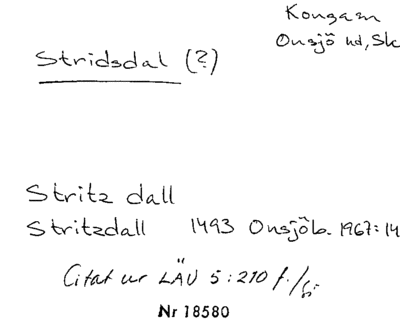 Konga sn
Onsjö hd, Sk
Stridsdal (?)
Stritz dall
Stritzdall 1493 Onsjöb. 1967:14
Citat ur LÄU 5:210 f./
Nr 18580